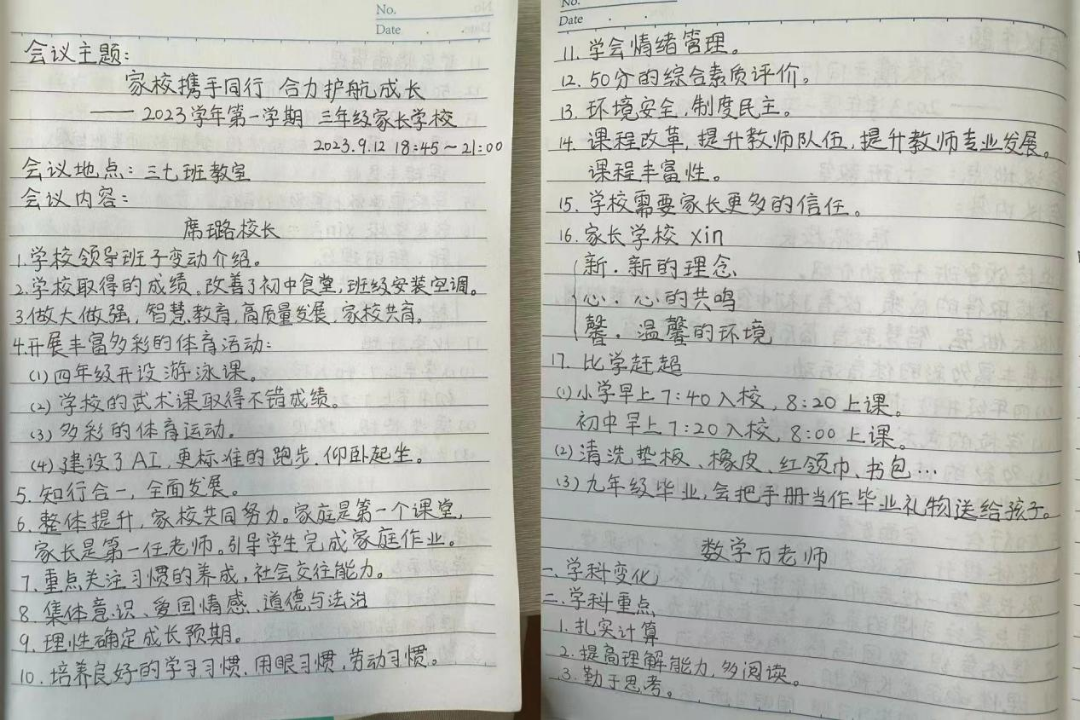 No.
Date
会议主题:
家校携手同行 合力护航成长
—— 2023学年第一学期 三年级家长学校
2023.9.12 18:45~21:00
会议地点:三七班教室
会议内容:
席璐校长
1.学校领导班子变动介绍。
2.学校取得的成绩,改善了初中食堂,班级安装空调。
3.做大做强,智慧教育,高质量发展,家校共育。
4.开展丰富多彩的体育活动:
(1)四年级开设游泳课。
(2)学校的武术课取得不错成绩。
(3)多彩的体育运动。
(4)建设了AI,更标准的跑步、仰卧起坐。
5.知行合一,全面发展。
6.整体提升,家校共同努力。家庭是第一个课堂,
家长是第一任老师。引导学生完成家庭作业。
7.重点关注习惯的养成,社会交往能力。
8.集体意识、爱国情感、道德与法治
9.理性确定成长预期。
10.培养良好的学习习惯,用眼习惯,劳动习惯。
No.
Date
11.学会情绪管理。
12.50分的综合素质评价。
13.环境安全,制度民主。
14.课程改革,提升教师队伍,提升教师专业发展。
课程丰富性。
15.学校需要家长更多的信任。
16.家长学校 xin
新.新的理念
心.心的共鸣
馨.温馨的环境
17.比学赶超
(1)小学早上7:40入校,8:20上课。
初中早上7:20入校,8:00上课。
(2)清洗垫板、橡皮、红领巾、书包…
(3)九年级毕业,会把手册当作毕业礼物送给孩子。
数学万老师
一.学科变化
二.学科重点
1.扎实计算
2.提高理解能力,多阅读。
3.勤于思考。